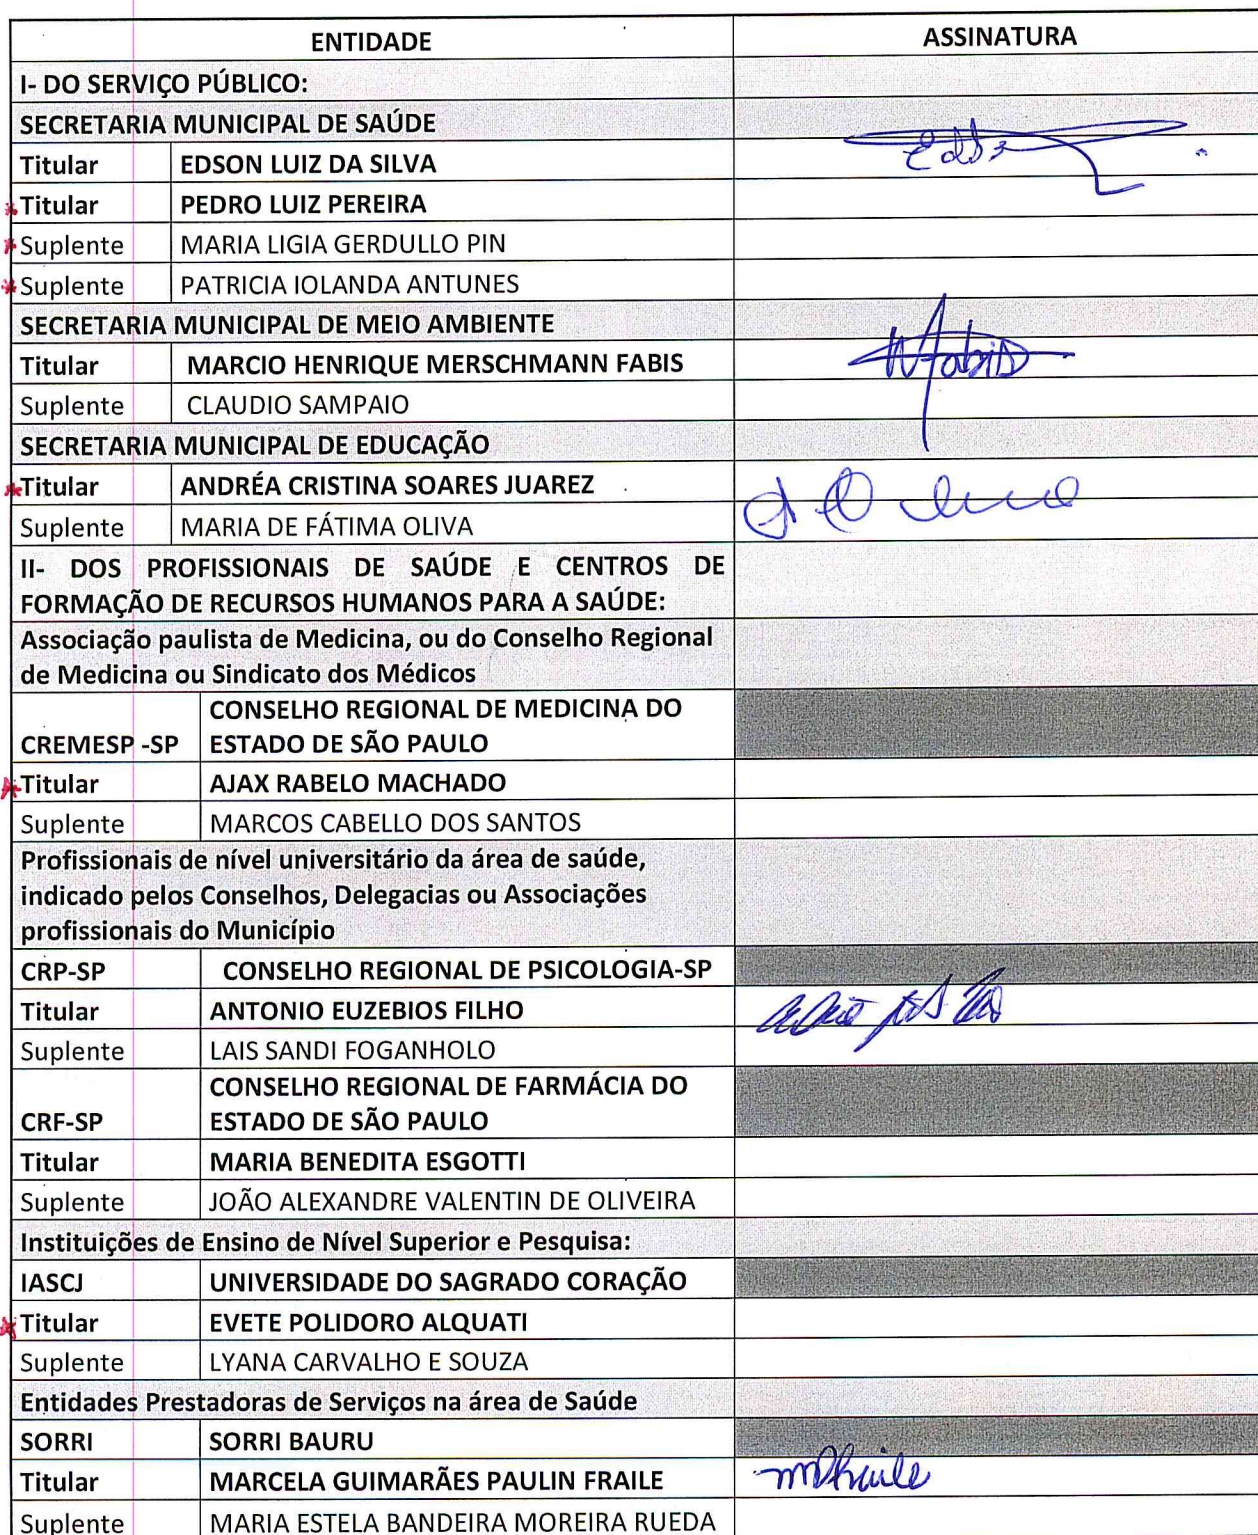 ENTIDADE ASSINATURA
I- DO SERVIÇO PÚBLICO:
SECRETARIA MUNICIPAL DE SAÚDE
Titular EDSON LUIZ DA SILVA
*Titular PEDRO LUIZ PEREIRA
*Suplente MARIA LIGIA GERDULLO PIN
*Suplente PATRICIA IOLANDA ANTUNES
SECRETARIA MUNICIPAL DE MEIO AMBIENTE
Titular MARCIO HENRIQUE MERSCHMANN FABIS
Suplente CLAUDIO SAMPAIO
SECRETARIA MUNICIPAL DE EDUCAÇÃO
*Titular ANDRÉA CRISTINA SOARES JUAREZ
Suplente MARIA DE FÁTIMA OLIVA
II- DOS PROFISSIONAIS DE SAÚDE E CENTROS DE
FORMAÇÃO DE RECURSOS HUMANOS PARA A SAÚDE:
Associação paulista de Medicina, ou do Conselho Regional
de Medicina ou Sindicato dos Médicos
CONSELHO REGIONAL DE MEDICINA DO
CREMESP -SP ESTADO DE SÃO PAULO
*Titular AJAX RABELO MACHADO
Suplente MARCOS CABELLO DOS SANTOS
Profissionais de nível universitário da área de saúde,
indicado pelos Conselhos, Delegacias ou Associações
profissionais do Município
CRP-SP CONSELHO REGIONAL DE PSICOLOGIA-SP
Titular ANTONIO EUZEBIOS FILHO
Suplente LAIS SANDI FOGANHOLO
CONSELHO REGIONAL DE FARMÁCIA DO
CRF-SP ESTADO DE SÃO PAULO
Titular MARIA BENEDITA ESGOTTI
Suplente JOÃO ALEXANDRE VALENTIN DE OLIVEIRA
Instituições de Ensino de Nível Superior e Pesquisa:
IASCJ UNIVERSIDADE DO SAGRADO CORAÇÃO
*Titular EVETE POLIDORO ALQUATI
Suplente LYANA CARVALHO E SOUZA
Entidades Prestadoras de Serviços na área de Saúde
SORRI SORRI BAURU
Titular MARCELA GUIMARÃES PAULIN FRAILE
Suplente MARIA ESTELA BANDEIRA MOREIRA RUEDA